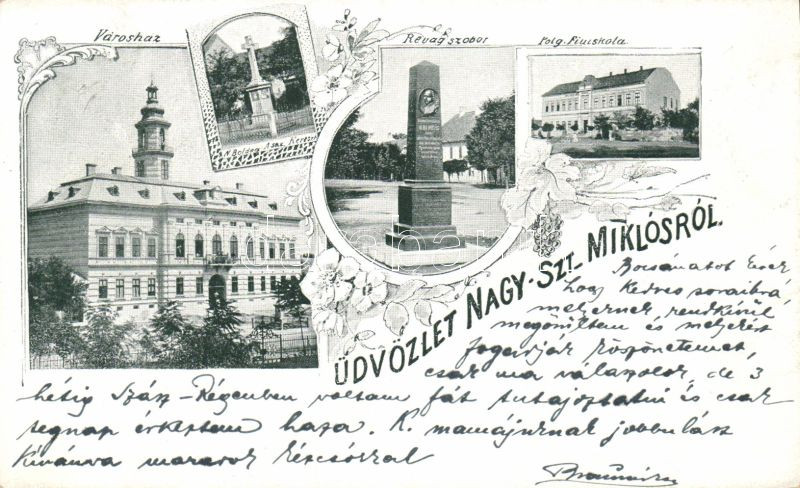 Városház
N. Boldog Assz. Kereszt
Révay szobor
Polg. Fiuiskola
ÜDVÖZLET NAGY-SZT- MIKLÓSRÓL.
Bocsánatot kérek
hogy kedves soraira
melyernek, rendkívül
megörültem és melyért
fogadják köszönetemet,
csak ma válaszolok, de 3
hétig Szász-Régenben voltam fát tutajoztatni és csak
tegnap érkeztem haza. K. mamájuknak jobbulást
kívánva maradok kézcsókkal